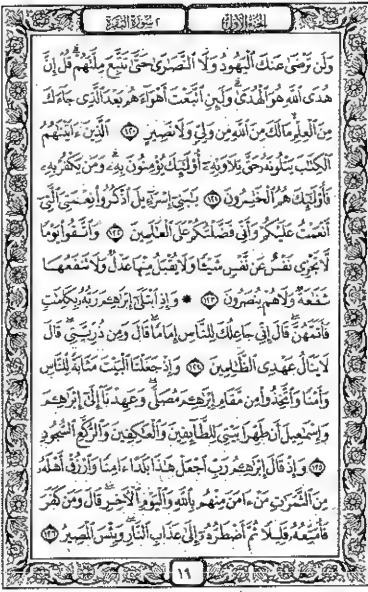 الجزء الأول
٢ سورة البقرة
وَلَن تَرْضَىٰ عَنكَ ٱلْيَهُودُ وَلَا ٱلنَّصَٰرَىٰ حَتَّىٰ تَتَّبِعَ مِلَّتَهُمْ ۗ قُلْ إِنَّ
هُدَى ٱللَّهِ هُوَ ٱلْهُدَىٰ ۗ وَلَئِنِ ٱتَّبَعْتَ أَهْوَآءَهُم بَعْدَ ٱلَّذِى جَآءَكَ
مِنَ ٱلْعِلْمِ ۙ مَا لَكَ مِنَ ٱللَّهِ مِن وَلِىٍّ وَلَا نَصِيرٍ ١٢٠ ٱلَّذِينَ ءَاتَيْنَٰهُمُ
ٱلْكِتَٰبَ يَتْلُونَهُۥ حَقَّ تِلَاوَتِهِۦٓ أُو۟لَٰٓئِكَ يُؤْمِنُونَ بِهِۦ ۗ وَمَن يَكْفُرْ بِهِۦ
فَأُو۟لَٰٓئِكَ هُمُ ٱلْخَٰسِرُونَ ١٢١ يَٰبَنِىٓ إِسْرَٰٓءِيلَ ٱذْكُرُوا۟ نِعْمَتِىَ ٱلَّتِىٓ
أَنْعَمْتُ عَلَيْكُمْ وَأَنِّى فَضَّلْتُكُمْ عَلَى ٱلْعَٰلَمِينَ ١٢٢ وَٱتَّقُوا۟ يَوْمًا
لَّا تَجْزِى نَفْسٌ عَن نَّفْسٍ شَيْـًٔا وَلَا يُقْبَلُ مِنْهَا عَدْلٌ وَلَا تَنفَعُهَا
شَفَٰعَةٌ وَلَا هُمْ يُنصَرُونَ ١٢٣ ۞ وَإِذِ ٱبْتَلَىٰٓ إِبْرَٰهِـۧمَ رَبُّهُۥ بِكَلِمَٰتٍ
فَأَتَمَّهُنَّ ۖ قَالَ إِنِّى جَاعِلُكَ لِلنَّاسِ إِمَامًا ۖ قَالَ وَمِن ذُرِّيَّتِى ۖ قَالَ
لَا يَنَالُ عَهْدِى ٱلظَّٰلِمِينَ ١٢٤ وَإِذْ جَعَلْنَا ٱلْبَيْتَ مَثَابَةً لِّلنَّاسِ
وَأَمْنًا وَٱتَّخِذُوا۟ مِن مَّقَامِ إِبْرَٰهِـۧمَ مُصَلًّى ۖ وَعَهِدْنَآ إِلَىٰٓ إِبْرَٰهِـۧمَ
وَإِسْمَٰعِيلَ أَن طَهِّرَا بَيْتِىَ لِلطَّآئِفِينَ وَٱلْعَٰكِفِينَ وَٱلرُّكَّعِ ٱلسُّجُودِ
١٢٥ وَإِذْ قَالَ إِبْرَٰهِـۧمُ رَبِّ ٱجْعَلْ هَٰذَا بَلَدًا ءَامِنًا وَٱرْزُقْ أَهْلَهُۥ
مِنَ ٱلثَّمَرَٰتِ مَنْ ءَامَنَ مِنْهُم بِٱللَّهِ وَٱلْيَوْمِ ٱلْـَٔاخِرِ ۖ قَالَ وَمَن كَفَرَ
فَأُمَتِّعُهُۥ قَلِيلًا ثُمَّ أَضْطَرُّهُۥٓ إِلَىٰ عَذَابِ ٱلنَّارِ ۖ وَبِئْسَ ٱلْمَصِيرُ ١٢٦
١٩